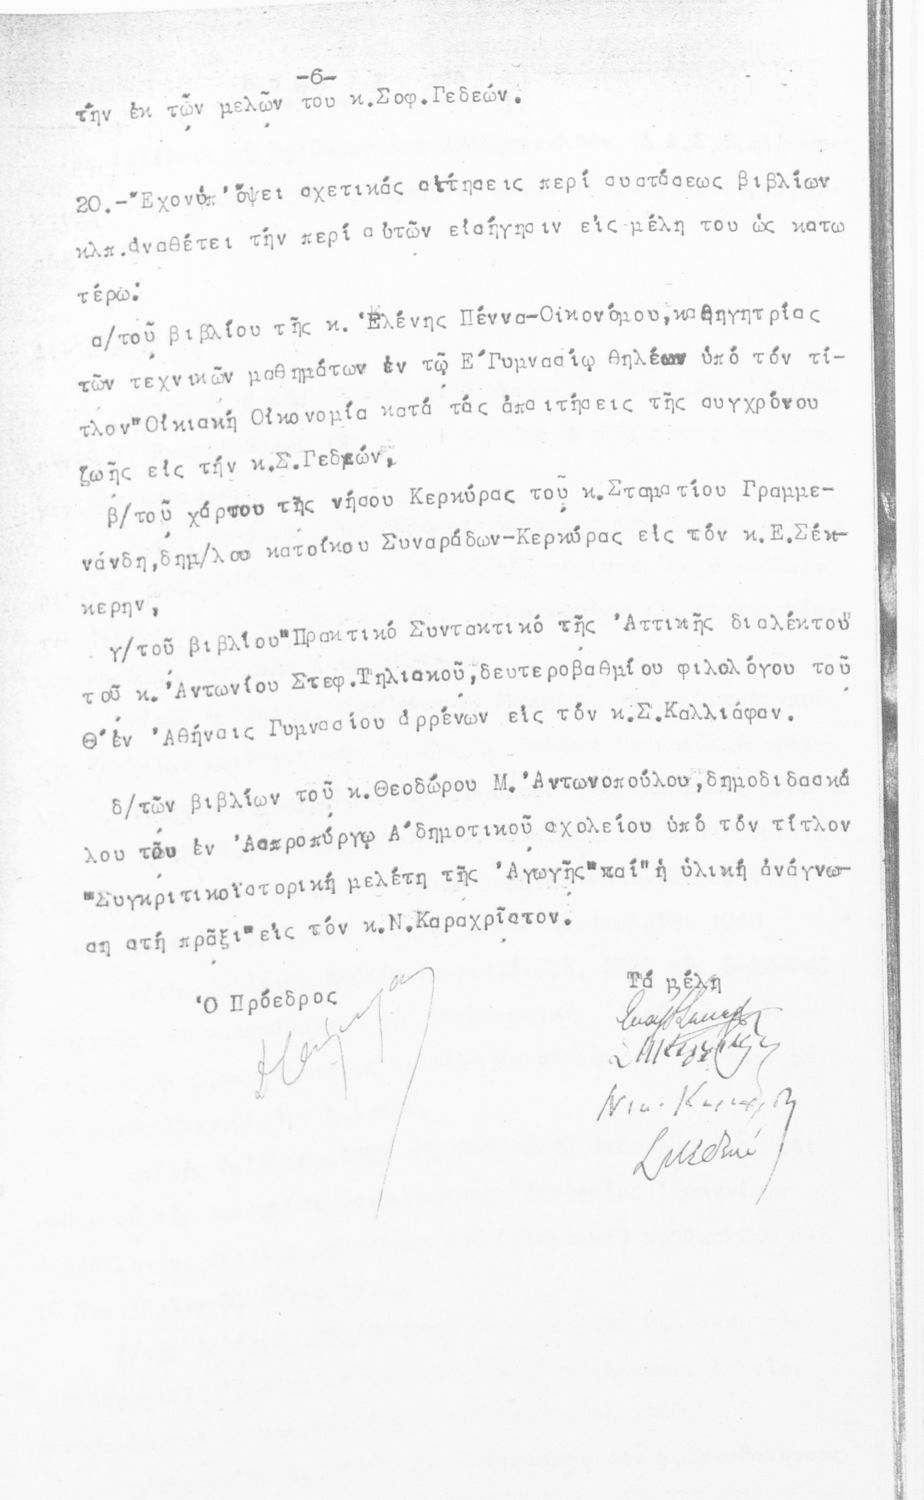 -6-
τήν ἐκ τῶν μελῶν του κ.Σοφ.Γεδεών.
20.-Ἔχονὑπ'ὄψει σχετικάς αἰτήσεις περί συστάσεως βιβλίων
κλπ.ἀναθέτει τήν περί αὐτῶν εἰσήγησιν εἰς μέλη του ὡς κατω
τέρω:
α/τοῦ βιβλίου τῆς κ. Ἑλένης Πέννα-Οἰκονόμου,καθηγητρίας
τῶν τεχνικῶν μαθημάτων ἐν τῷ Ε΄Γυμνασίῳ θηλέων ὑπό τόν τί-
τλον"Οἰκιακή Οἰκονομία κατά τάς ἀπαιτήσεις τῆς συγχρόνου
ζωῆς εἰς τήν κ.Σ.Γεδεών,
β/τοῦ χάρτου τῆς νήσου Κερκύρας τοῦ κ.Σταματίου Γραμμε-
νάνδη,δημ/λου κατοίκου Συναράδων-Κερκύρας εἰς τόν κ.Ε.Σέκ-
κερην,
γ/τοῦ βιβλίου"Πρακτικό Συντακτικό τῆς Ἀττικῆς διαλέκτου"
τοῦ κ.Ἀντωνίου Στεφ.Τηλιακοῦ,δευτεροβαθμίου φιλολόγου τοῦ
Θ΄ἐν Ἀθήναις Γυμνασίου ἀρρένων εἰς τόν κ.Σ.Καλλιάφαν.
δ/τῶν βιβλίων τοῦ κ.Θεοδώρου Μ.Ἀντωνοπούλου,δημοδιδασκά
λου τοῦ ἐν Ἀσπροπύργῳ Α΄δημοτικοῦ σχολείου ὑπό τόν τίτλον
"Συγκριτικοϊστορική μελέτη τῆς Ἀγωγῆς"καί"ἡ ὑλική ἀνάγνω-
ση στή πρᾶξι"εἰς τόν κ.Ν.Καραχρῖστον.
Ὁ Πρόεδρος
Τά μέλη